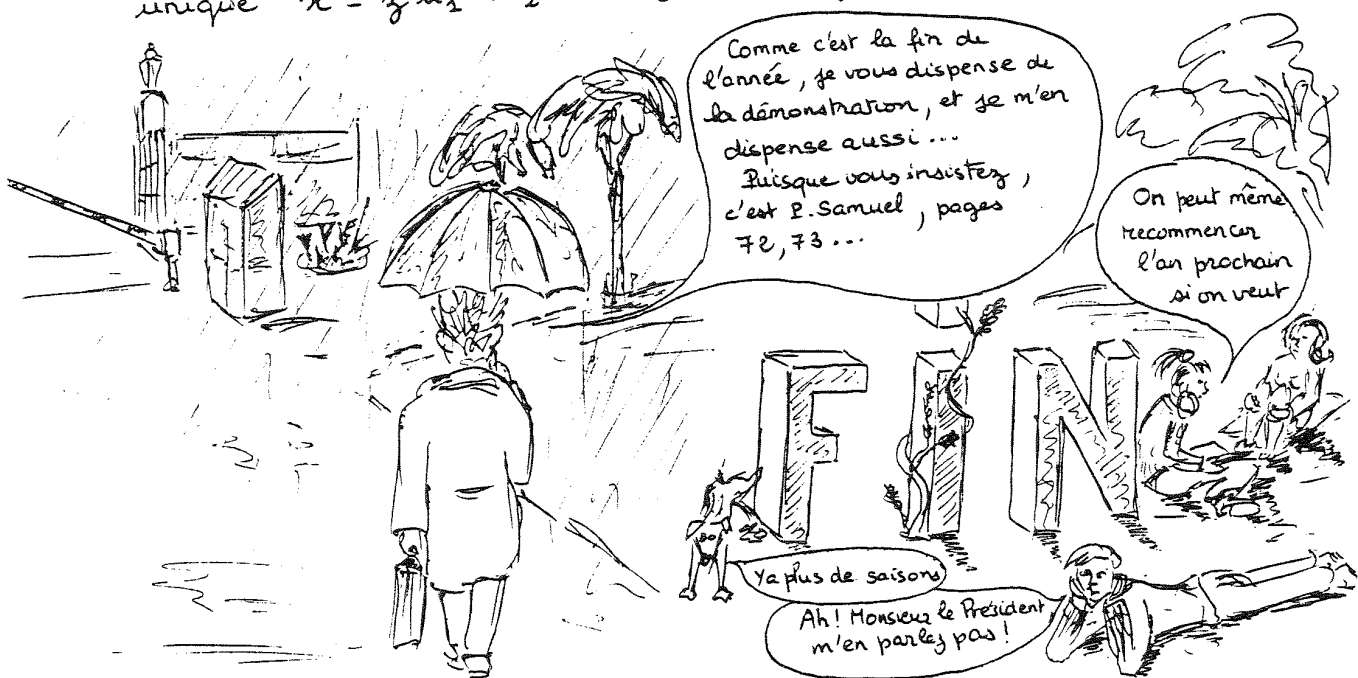 unique
Comme c'est la fin de
l'année, je vous dispense de
la démonstration, et je m'en
dispense aussi...
Puisque vous insistez,
c'est P. Samuel, pages
72, 73...
On peut même
recommencer
l'an prochain
si on veut
FIN
Ya plus de saisons
Ah! Monsieur le Président
m'en parlez pas!